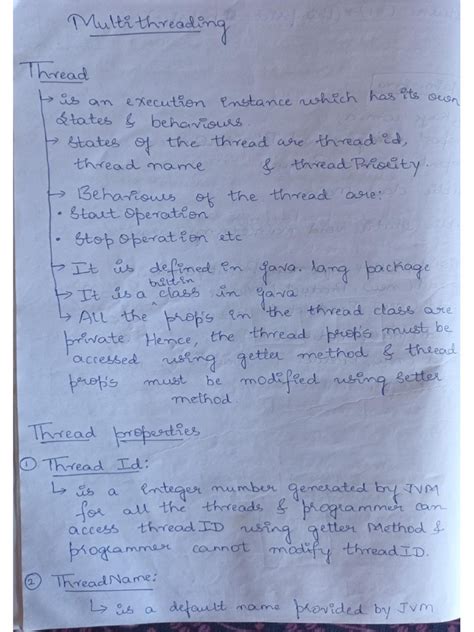 Multithreading
Thread
↳ is an execution instance which has its own
states & behaviours
→ States of the thread are thread id,
thread name & thread Priority.
→ Behaviours of the thread are:
• Start Operation
• Stop Operation etc
→ It is defined in java.lang package
builtin
→ It is a class in java
↳ All the prop's in the thread class are
private Hence, the thread prop's must be
accessed using getter method & thread
prop's must be modified using setter
method
Thread properties
① Thread Id:
↳ is a integer number generated by JVM
for all the threads & programmer can
access threadID using getter Method &
programmer cannot modify threadID.
② ThreadName:
↳ is a default name provided by JVM